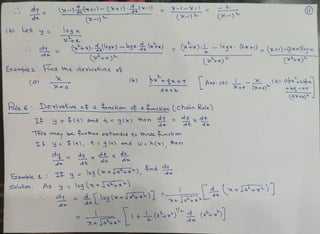 ∴ dy/dx = ((x-1) d/dx (x+1) - (x+1) · d/dx (x-1)) / (x-1)² = (x-1-x-1) / (x-1)² = -2 / (x-1)²
(b) Let y = log x / (x²+x)
∴ dy/dx = ((x²+x) · d/dx (log x) - log x · d/dx (x²+x)) / (x²+x)² = ((x²+x) · 1/x - log x · (2x+1)) / (x²+x)² = ((x+1) - (2x+1) log x) / (x²+x)²
Example 2 Find the derivatives of
(a) x / (x+a) (b) (px²+qx+r) / (ax+b) [Ans: (a) 1/(x+a) - x/(x+a)² (b)
Rule 6: Derivative of a function of a function (Chain Rule)
If y = f(t) and t = g(x) then dy/dx = dy/dt × dt/dx
This may be further extended to three function
If y = f(t), t = g(u) and u = h(x), then
dy/dx = dy/dt × dt/du × du/dx
Example 1: If y = log (x+√(a²+x²)), find dy/dx
Solution: As y = log (x+√(a²+x²))
∴ dy/dx = d/dx [log (x+√(a²+x²))] = 1/(x+√(a²+x²)) [d/dx (x+√(a²+x²))]
= 1/(x+√(a²+x²)) [1 + 1/2 (a²+x²) d/dx (a²+x²)]